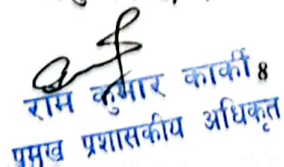 राम कुमार कार्की 8
प्रमुख प्रशासकीय अधिकृत